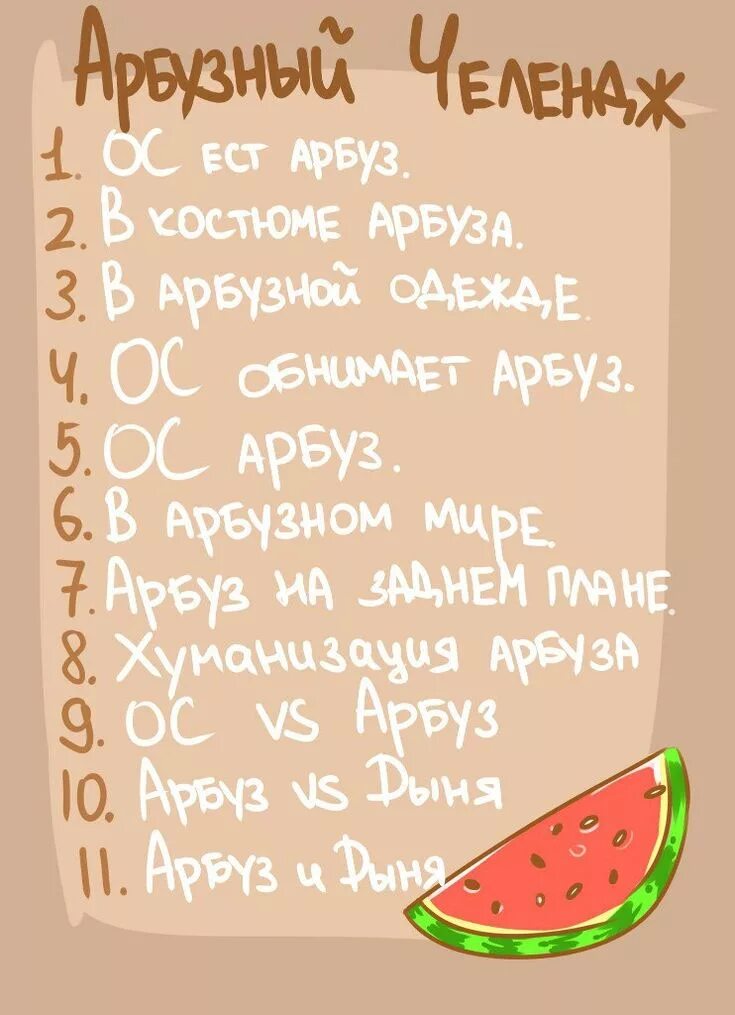 Арбузный Челендж
1. ОС ест арбуз.
2. В костюме арбуза.
3. В арбузной одежде.
4. ОС обнимает арбуз.
5. ОС арбуз.
6. В арбузном мире.
7. Арбуз на заднем плане.
8. Хуманизация арбуза
9. ОС vs Арбуз
10. Арбуз vs Дыня
11. Арбуз и Дыня